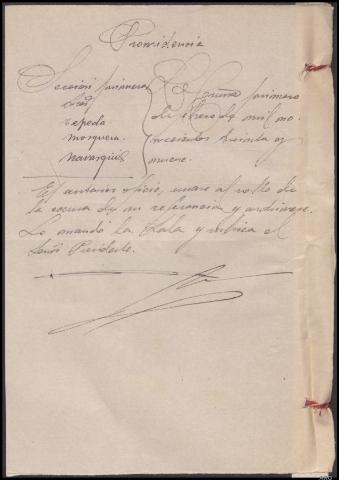 Providencia
Sección primera
Sres
Cepeda
Mosquera
Navarguis
La Coruña primero
de Enero de mil no
vecientos treinta y
nueve.
El anterior oficio, unase al rollo de
la causa de su referencia y archivese.
Lo mandó la Sala y rubrica el
Señor Presidente.